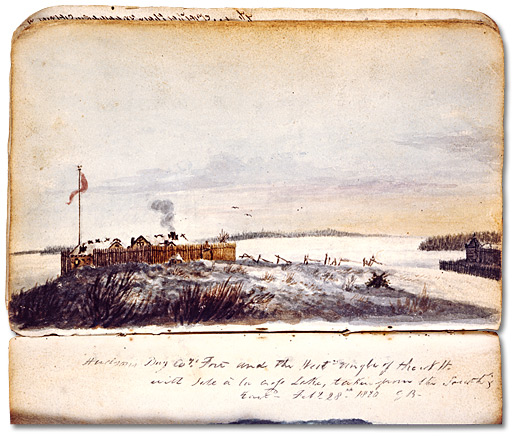 Hudson's Bay Coys. Fort and the West angle of the N W.
with Isle à la Cross Lake, taken from the South
Feby. 28th 1820 GB-